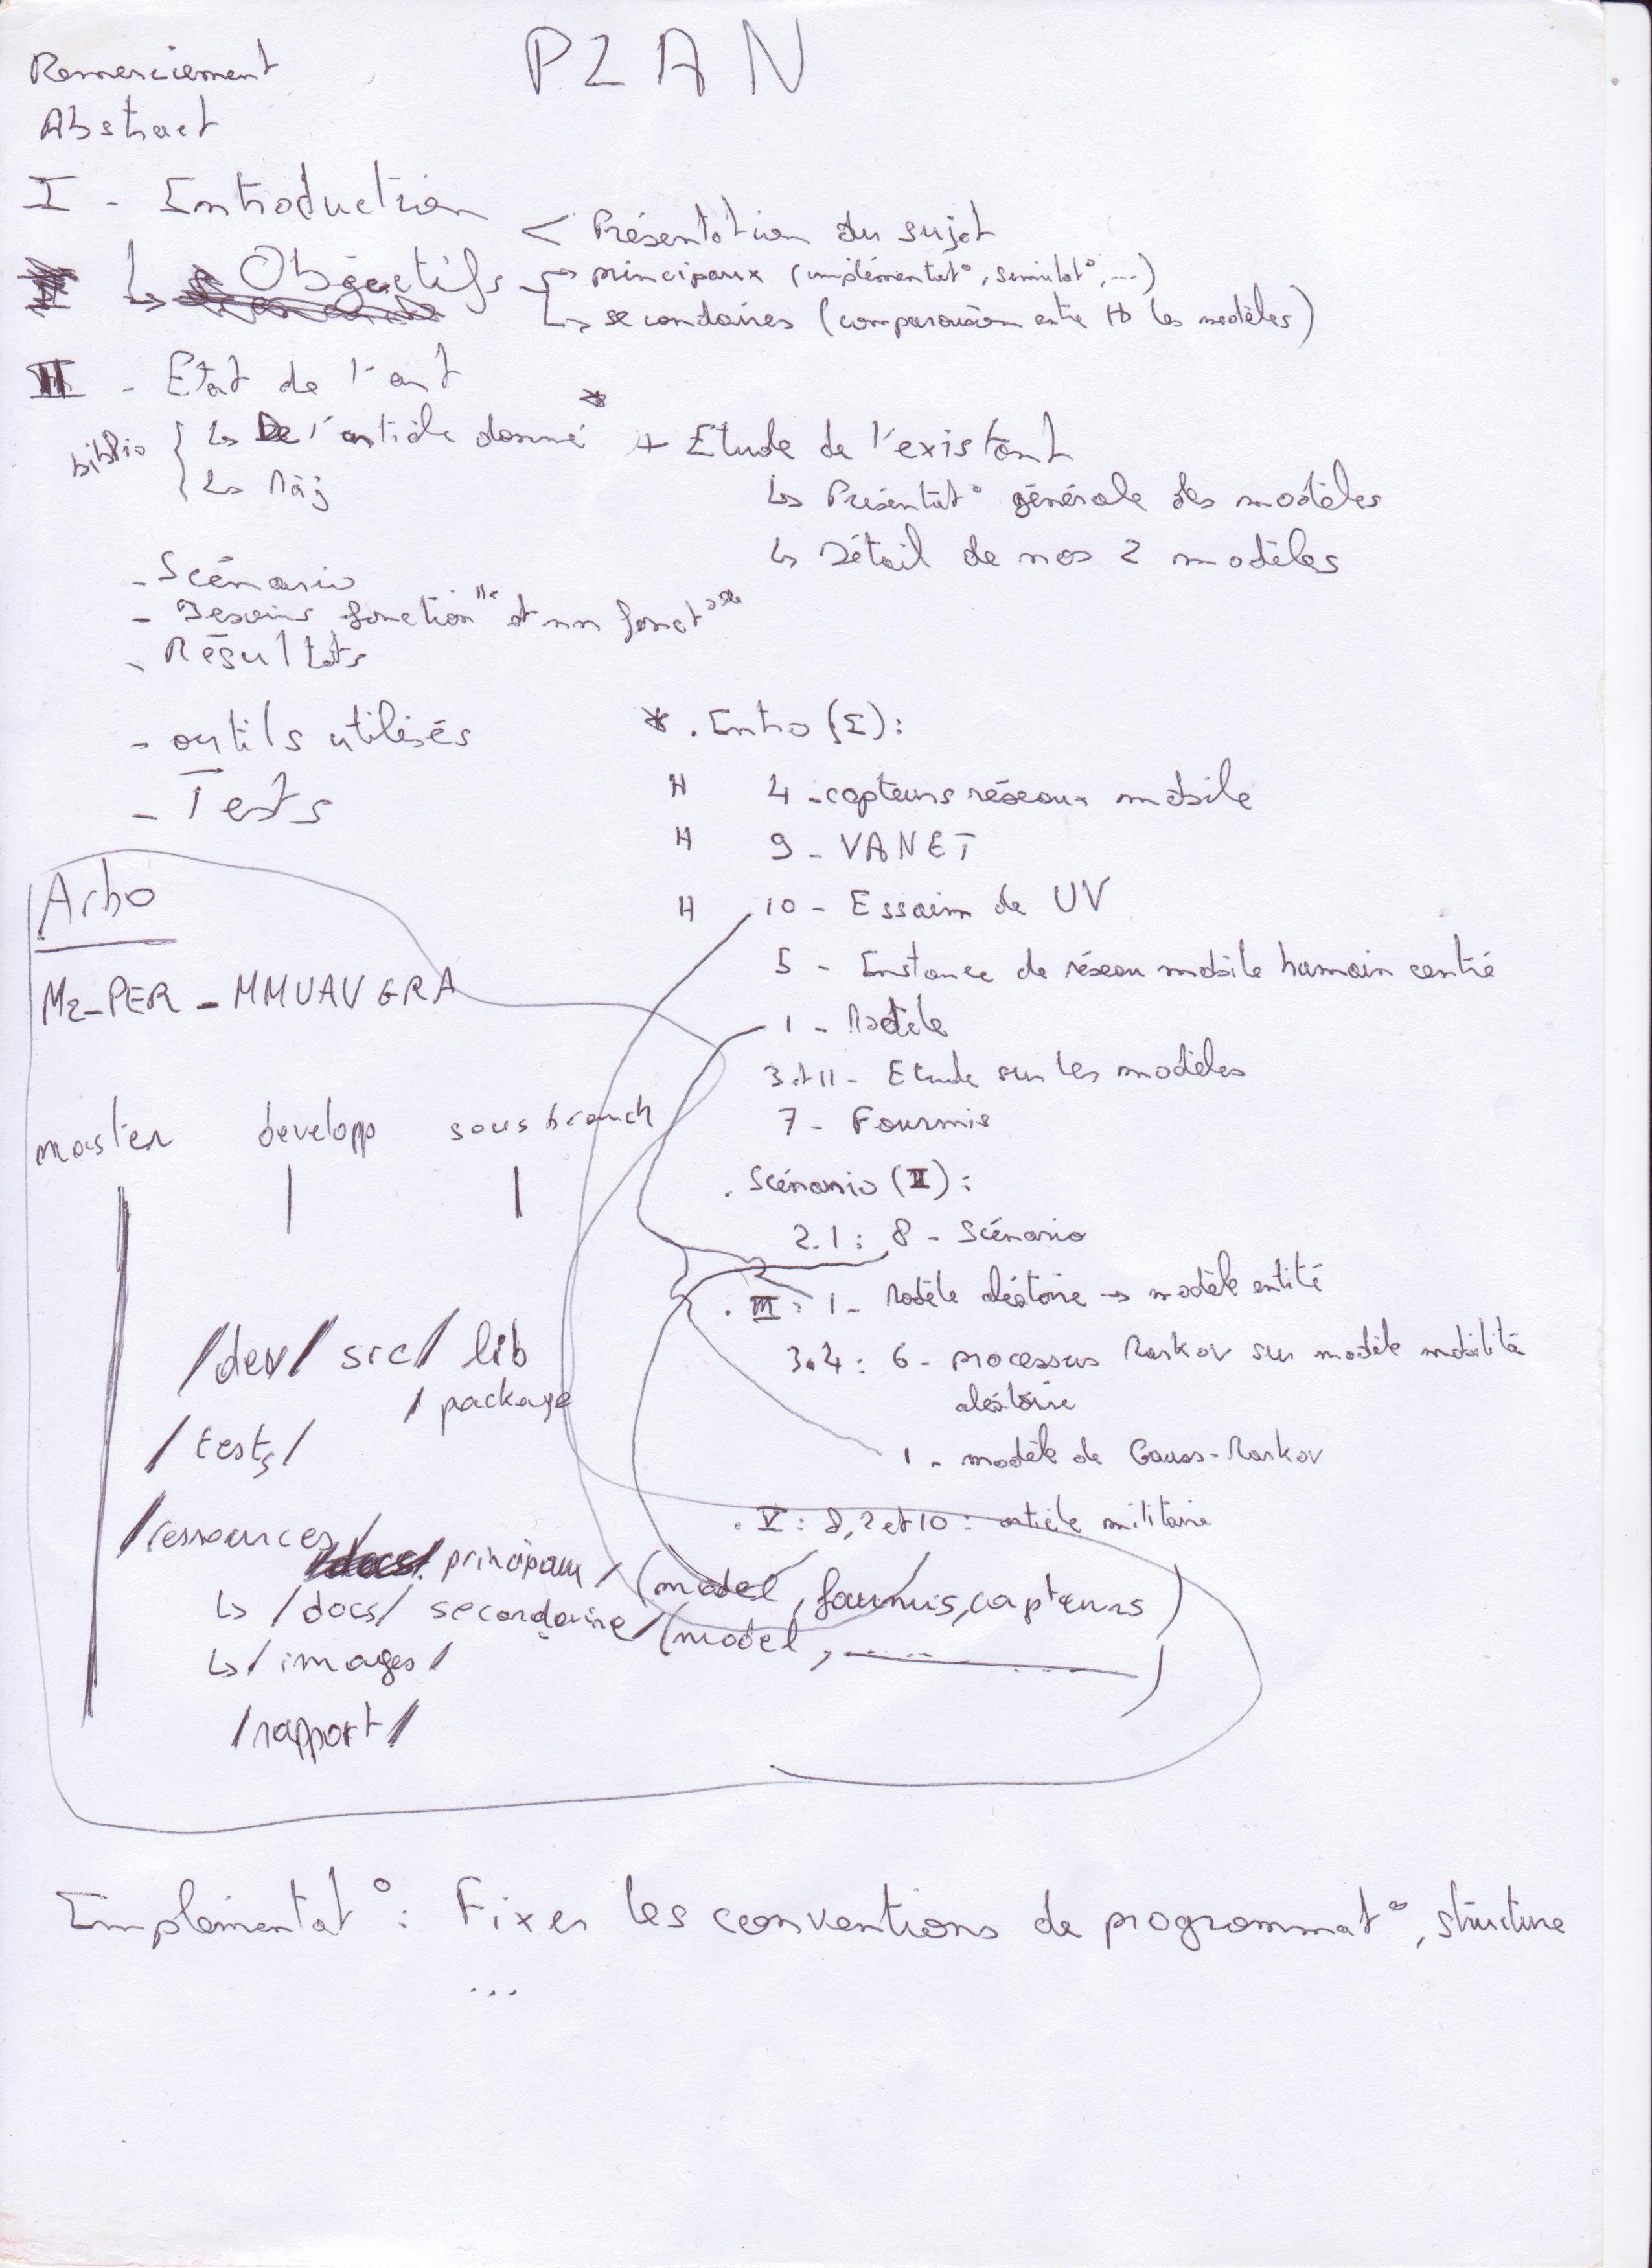 PLAN
Remerciement
Abstract
I - Introduction
< Présentation du sujet
↳ Objectifs
→ principaux (implémentat°, simulat°, ...)
↳ secondaires (comparaison entre les modèles)
II - Etat de l'art
biblio { ↳ De l'article donné *
↳ Màj
+ Etude de l'existant
↳ Présentat° générale des modèles
↳ Détail de nos 2 modèles
- Scénario
- Besoins fonction^lle et non fonct°^elle
- Résultats
- outils utilisés
- Tests
* . Intro (I) :
H 4 - capteurs réseaux mobile
H 9 - VANET
H 10 - Essaim de UV
5 - Instance de réseau mobile humain centré
1 - Modèle
3 et 11 - Etude sur les modèles
7 - Fourmis
. Scénario (II) :
2.1 : 8 - Scénario
. III : 1 - Modèle aléatoire → modèle entité
3.4 : 6 - processus Markov sur modèle mobilité
aléatoire
1 - modèle de Gauss-Markov
. V : 8, 2 et 10 : article militaire
Arbo
M2_PER_MMUAVGRA
master developp sous branch
/dev/ src/ lib
/ package
/ tests/
/ressources/
principaux / (model, fourmis, capteurs)
↳ /docs/ secondaire / (model, ........)
↳ / images /
/rapport /
Implémentat° : Fixer les conventions de programmat°, structure
...